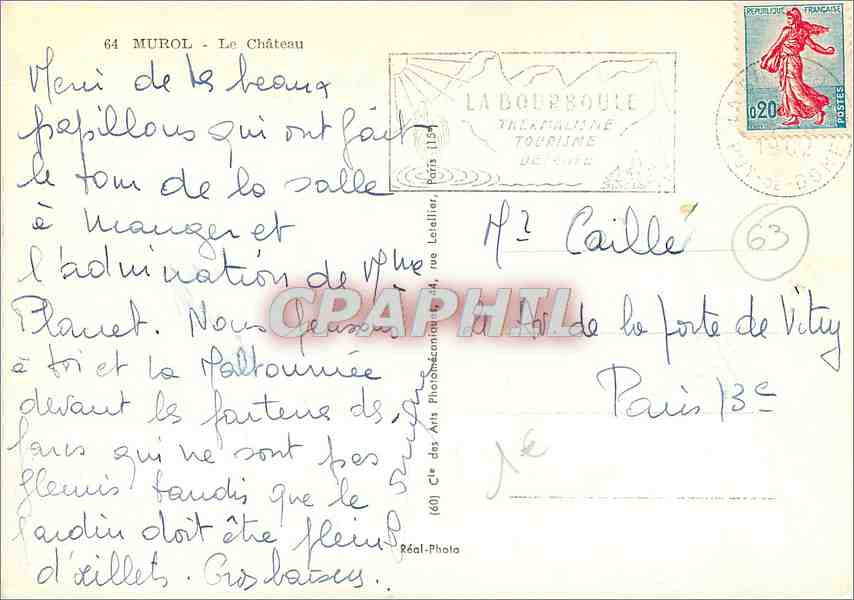 64 MUROL - Le Château
Merci de tes beaux
papillons qui ont fait
le tour de la salle
à manger et
l'admiration de Mme
Planet. Nous pensons
à toi et la
devant les
parcs qui ne sont pas
fleuris tandis que le
jardin doit être plein
d'œillets. Gros baisers.
REPUBLIQUE FRANÇAISE
0,20
POSTES
LA BOURBOULE
THERMALISME
TOURISME
PUY-DE-DOME
(60) Cie des Arts Photomécaniques, 44, rue Letellier, Paris (15e)
Réal-Photo
CPAPHIL
Mr Caillé
63
Av. de la porte de Vitry
Paris 13e
1€